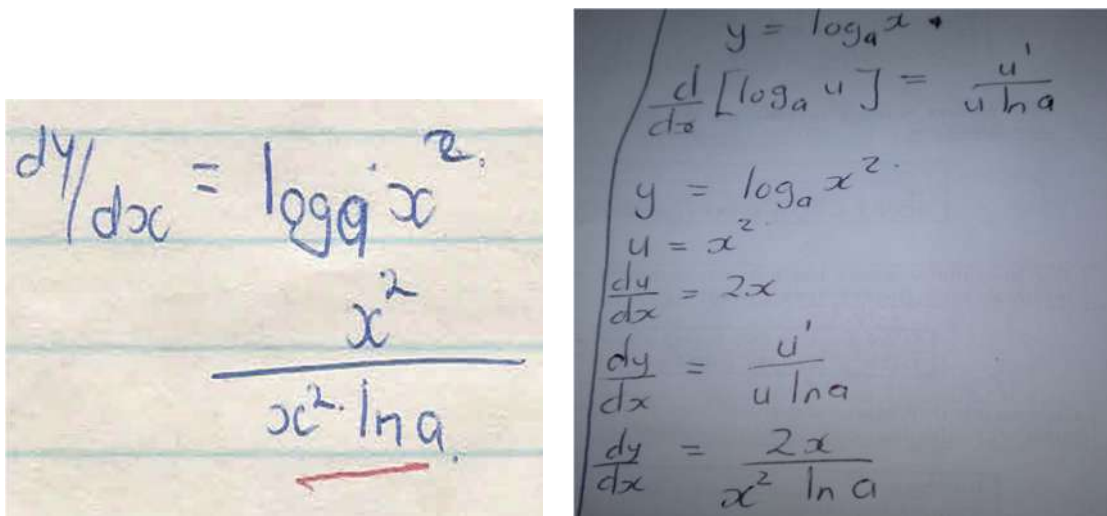 dy/dx = log_a x^2.
x^2
x^2. ln a.
y = log_a x
d/dx [log_a u] = u' / u ln a
y = log_a x^2.
u = x^2.
du/dx = 2x
dy/dx = u' / u ln a
dy/dx = 2x / x^2 ln a